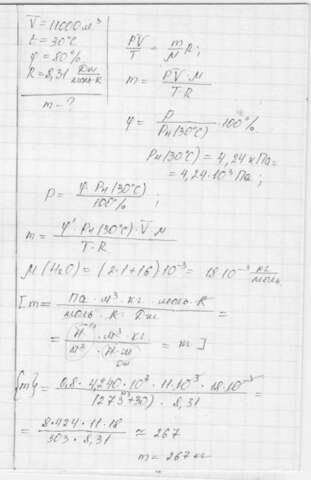 V = 11000 м³
t = 30°C
φ = 80%
R = 8,31 Дж/моль·К
m - ?
PV/T = m/M R;
m = PV·M/T·R
φ = P/Pн(30°C) · 100%
Pн(30°C) = 4,24 кПа =
= 4,24·10³ Па;
P = φ·Pн(30°C)/100% ;
m = φ·Pн(30°C)·V·M/T·R
M(H₂O) = (2·1+16)·10⁻³ = 18·10⁻³ кг/моль
[m = Па·м³·кг·моль·К/моль·К·Дж =
= Н·м³·кг/м²·Н·м = кг]
Дж
{m} = 0,8·4,240·10³·11·10³·18·10⁻³/(273+30)·8,31 =
= 8·424·11·18/303·8,31 ≈ 267
m = 267 кг